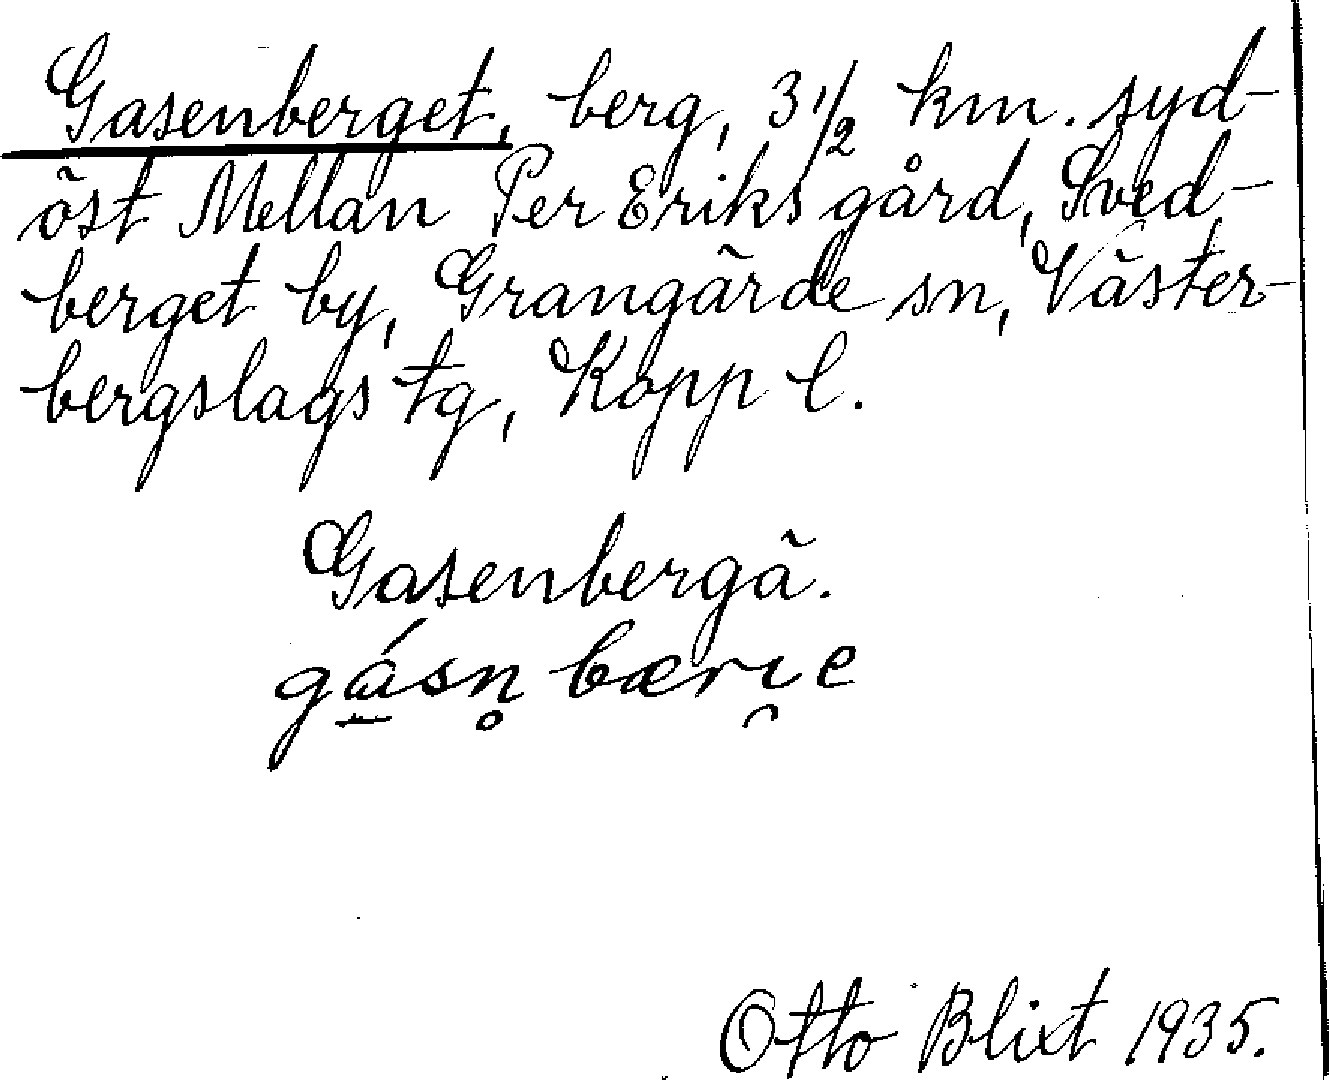 Gasenberget, berg, 3 1/2 km. syd-
öst Mellan Per Eriks gård, Sved-
berget by, Grangärde sn, Väster-
bergslags tg, Kopp l.
Gasenbergä.
gá̱sn̥ bærı̯e
Otto Blixt 1935.